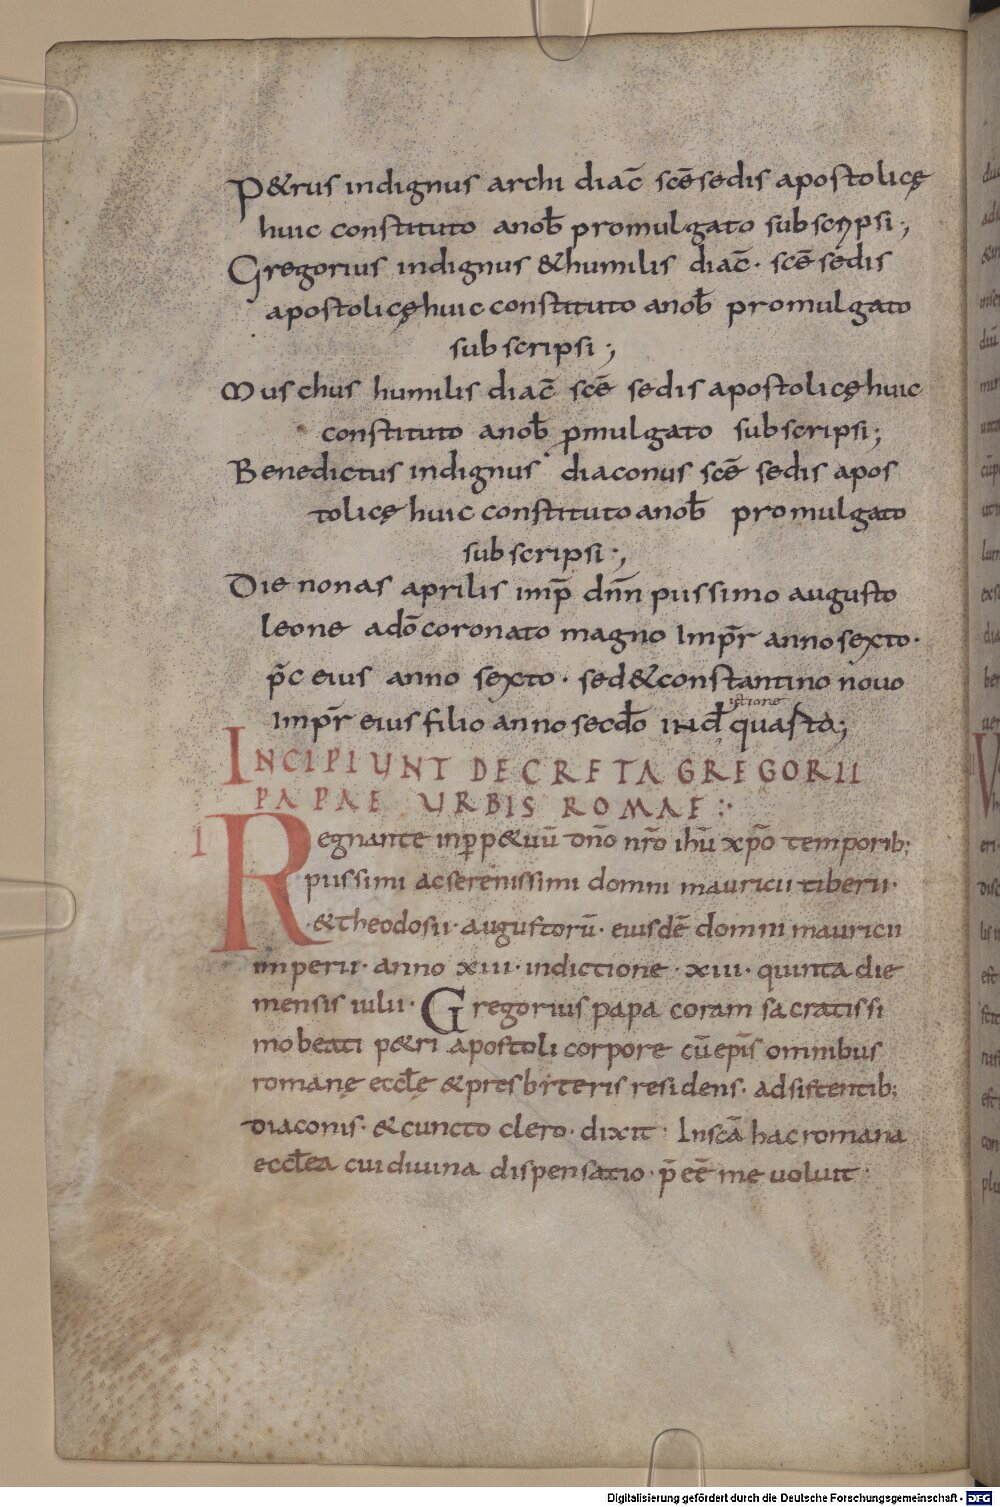 P&rus indignus archi diac̄ scē sedis apostolicę
huic constituto anob̄ promulgato subscripsi;
Gregorius indignus &humilis diac̄· scē sedis
apostolicę huic constituto anob̄ promulgato
subscripsi;
Muschus humilis diac̄ scē sedis apostolicę huic
constituto anob̄ ꝓmulgato subscripsi;
Benedictus indignus diaconus scē sedis apos
tolicę huic constituto anob̄ promulgato
subscripsi;
Die nonas aprilis imp̄ dn̄n piissimo augusto
leone adō coronato magno Imp̄r anno sexto·
p̄c eius anno sexto· sed&constantino nouo
Imp̄r eius filio anno secd̄o ind̄ quarta;
INCIPIUNT DECRETA GREGORII
PAPAE URBIS ROMAE :·
I Regnante inꝑp&uū dn̄o nr̄o ihū xp̄o temporib;
piissimi acserenissimi domni mauricii tiberii·
&theodosii· augustorū· eiusdē domni mauricii
imperii· anno xiii· indictione· xiii· quinta die
mensis iulii· Gregorius papa coram sacratissi
mo beati p&ri apostoli corpore cū ep̄is omnibus
romanę eccl̄ę &presbiteris residens· adsistentib;
diaconis· &cuncto clero· dixit· Inscā hac romana
eccl̄ea cui diuina dispensatio· p̄eē me uoluit·
Digitalisierung gefördert durch die Deutsche Forschungsgemeinschaft - DFG